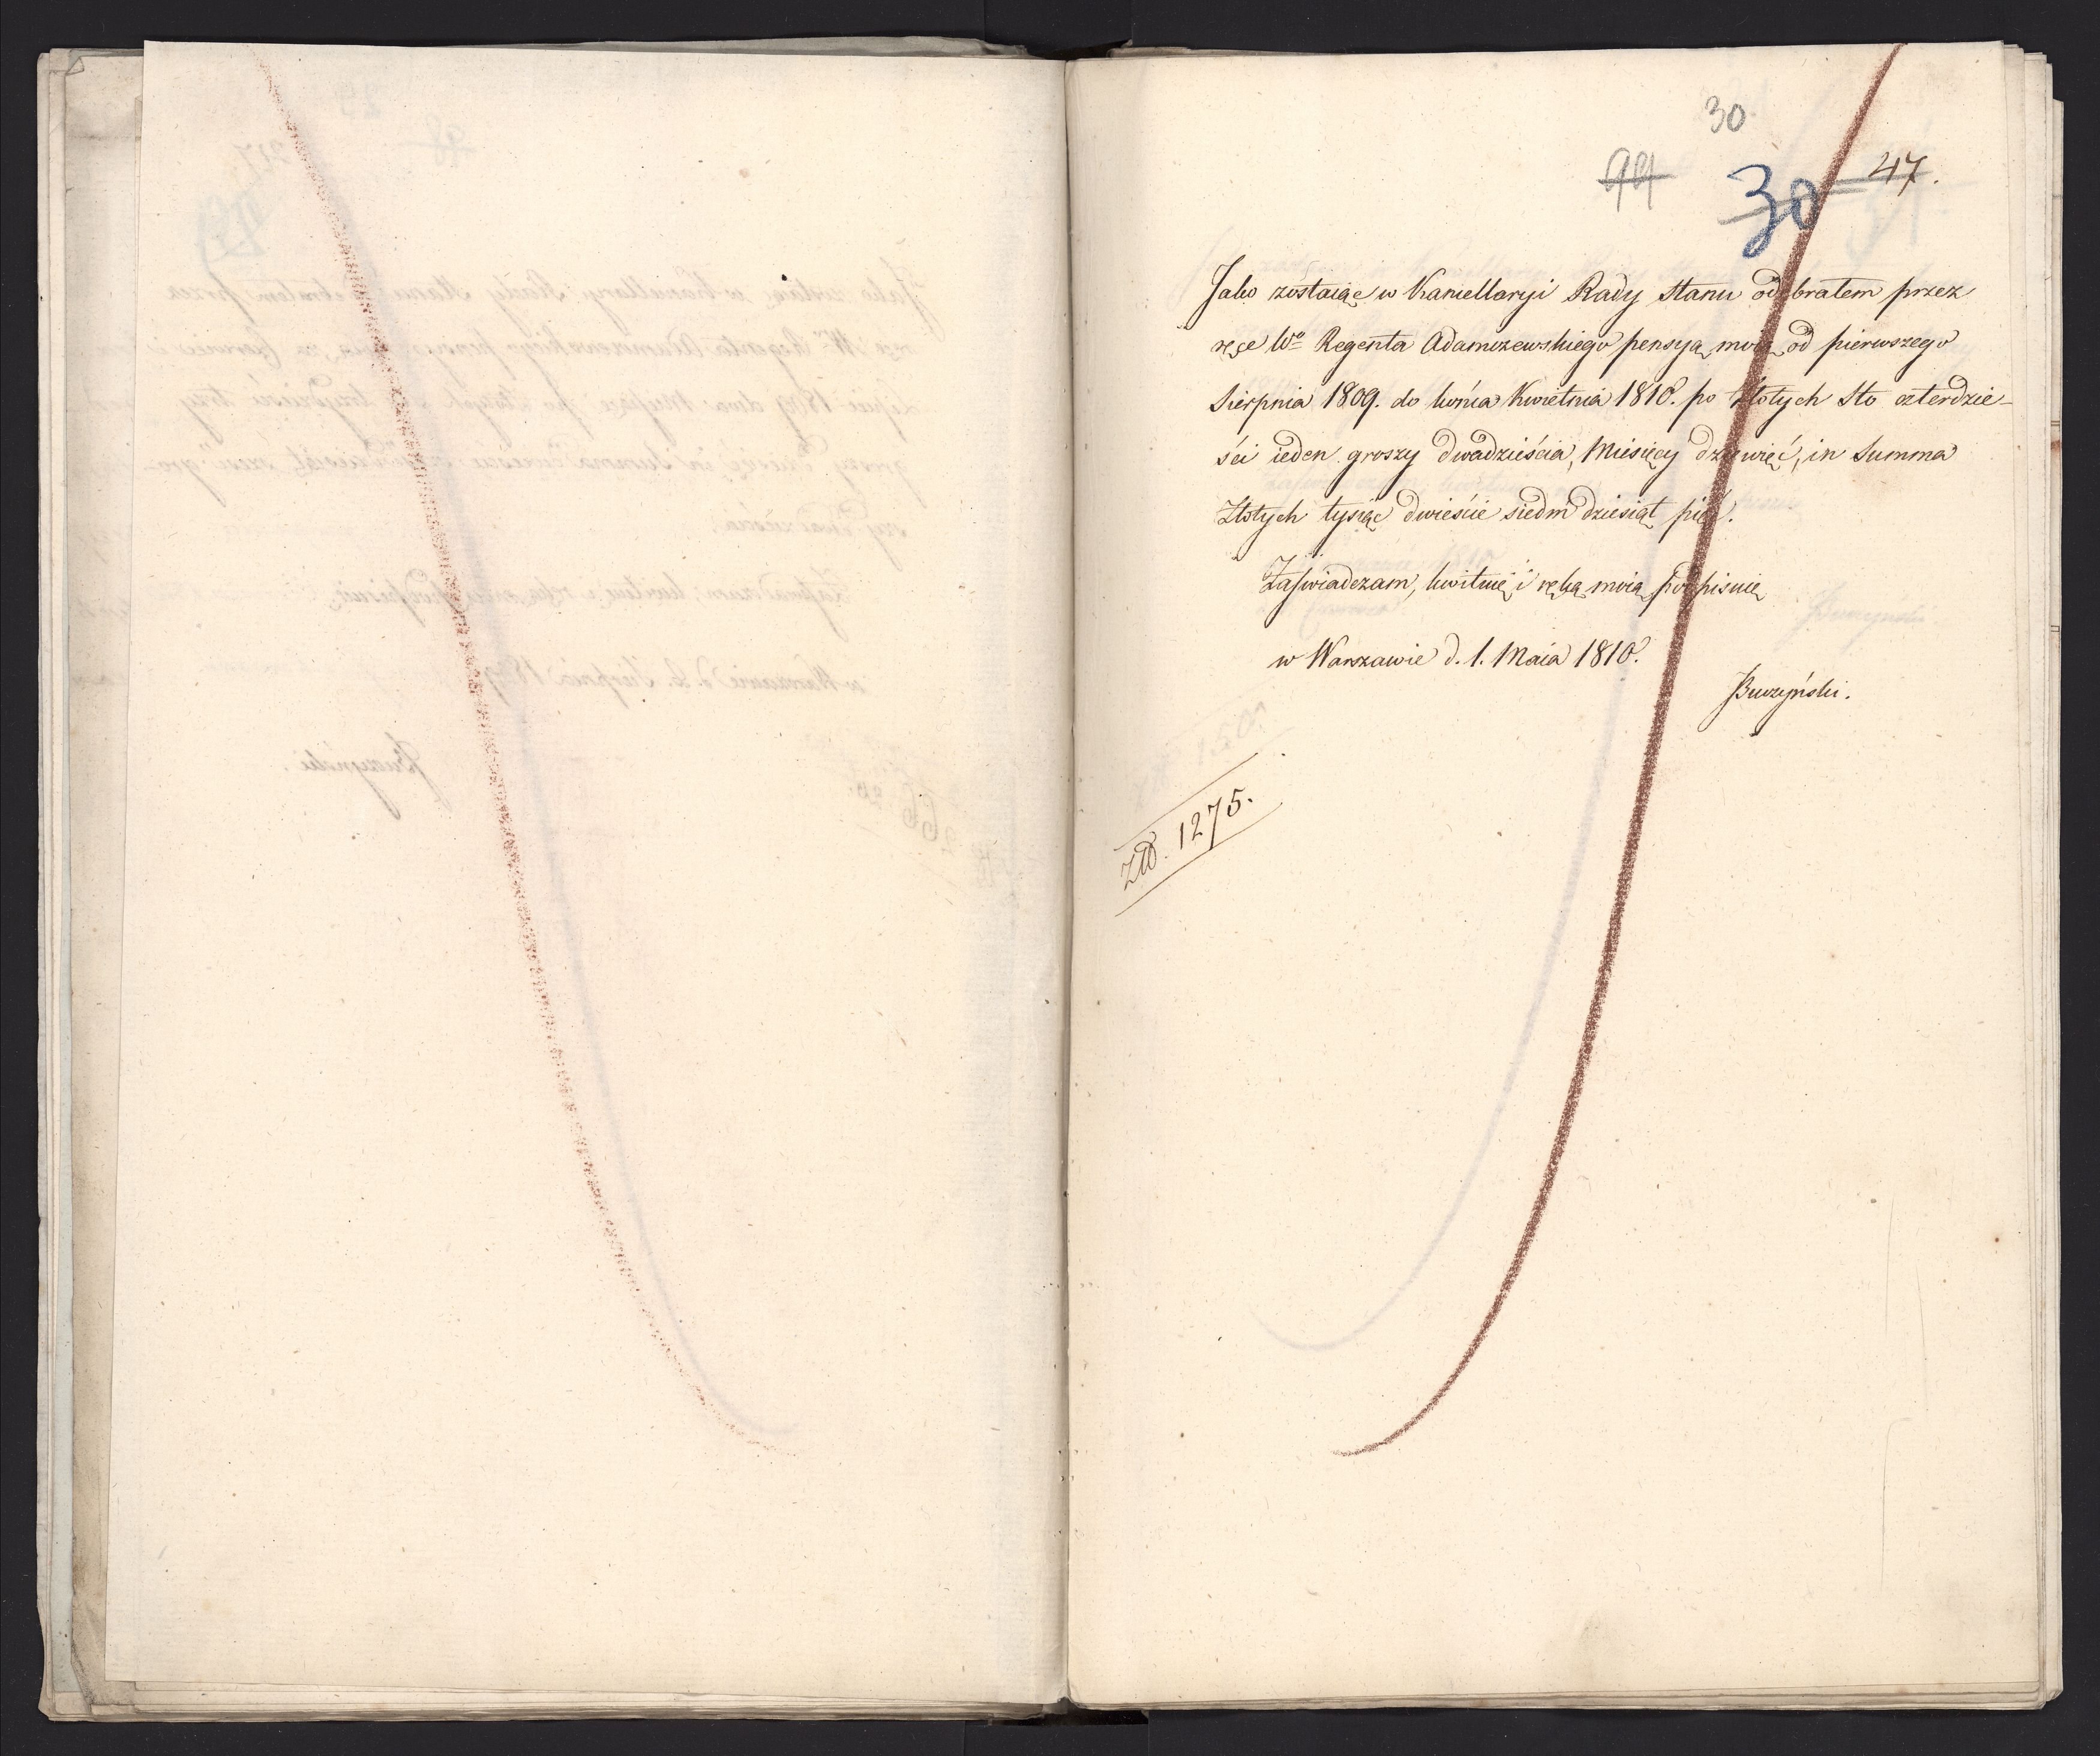 30
30
47.
Jako zostaiąc w Kancellaryi Rady Stanu odebrałem przez
ręce Wo Regenta Adamczewskiego pensyą moią od pierwszego
Sierpnia 1809. do końca Kwietnia 1810. po Złotych sto czterdzie-
ści ieden groszy dwadzieścia, Miesięcy dziewięć, in Summa
Złotych tysiąc dwieście siedmdziesiąt pięć.
Zaświadczam, kwituię i ręką moią podpisuię
w Warszawie d. 1. Maia 1810.
Buczyński.
Złt. 1275.